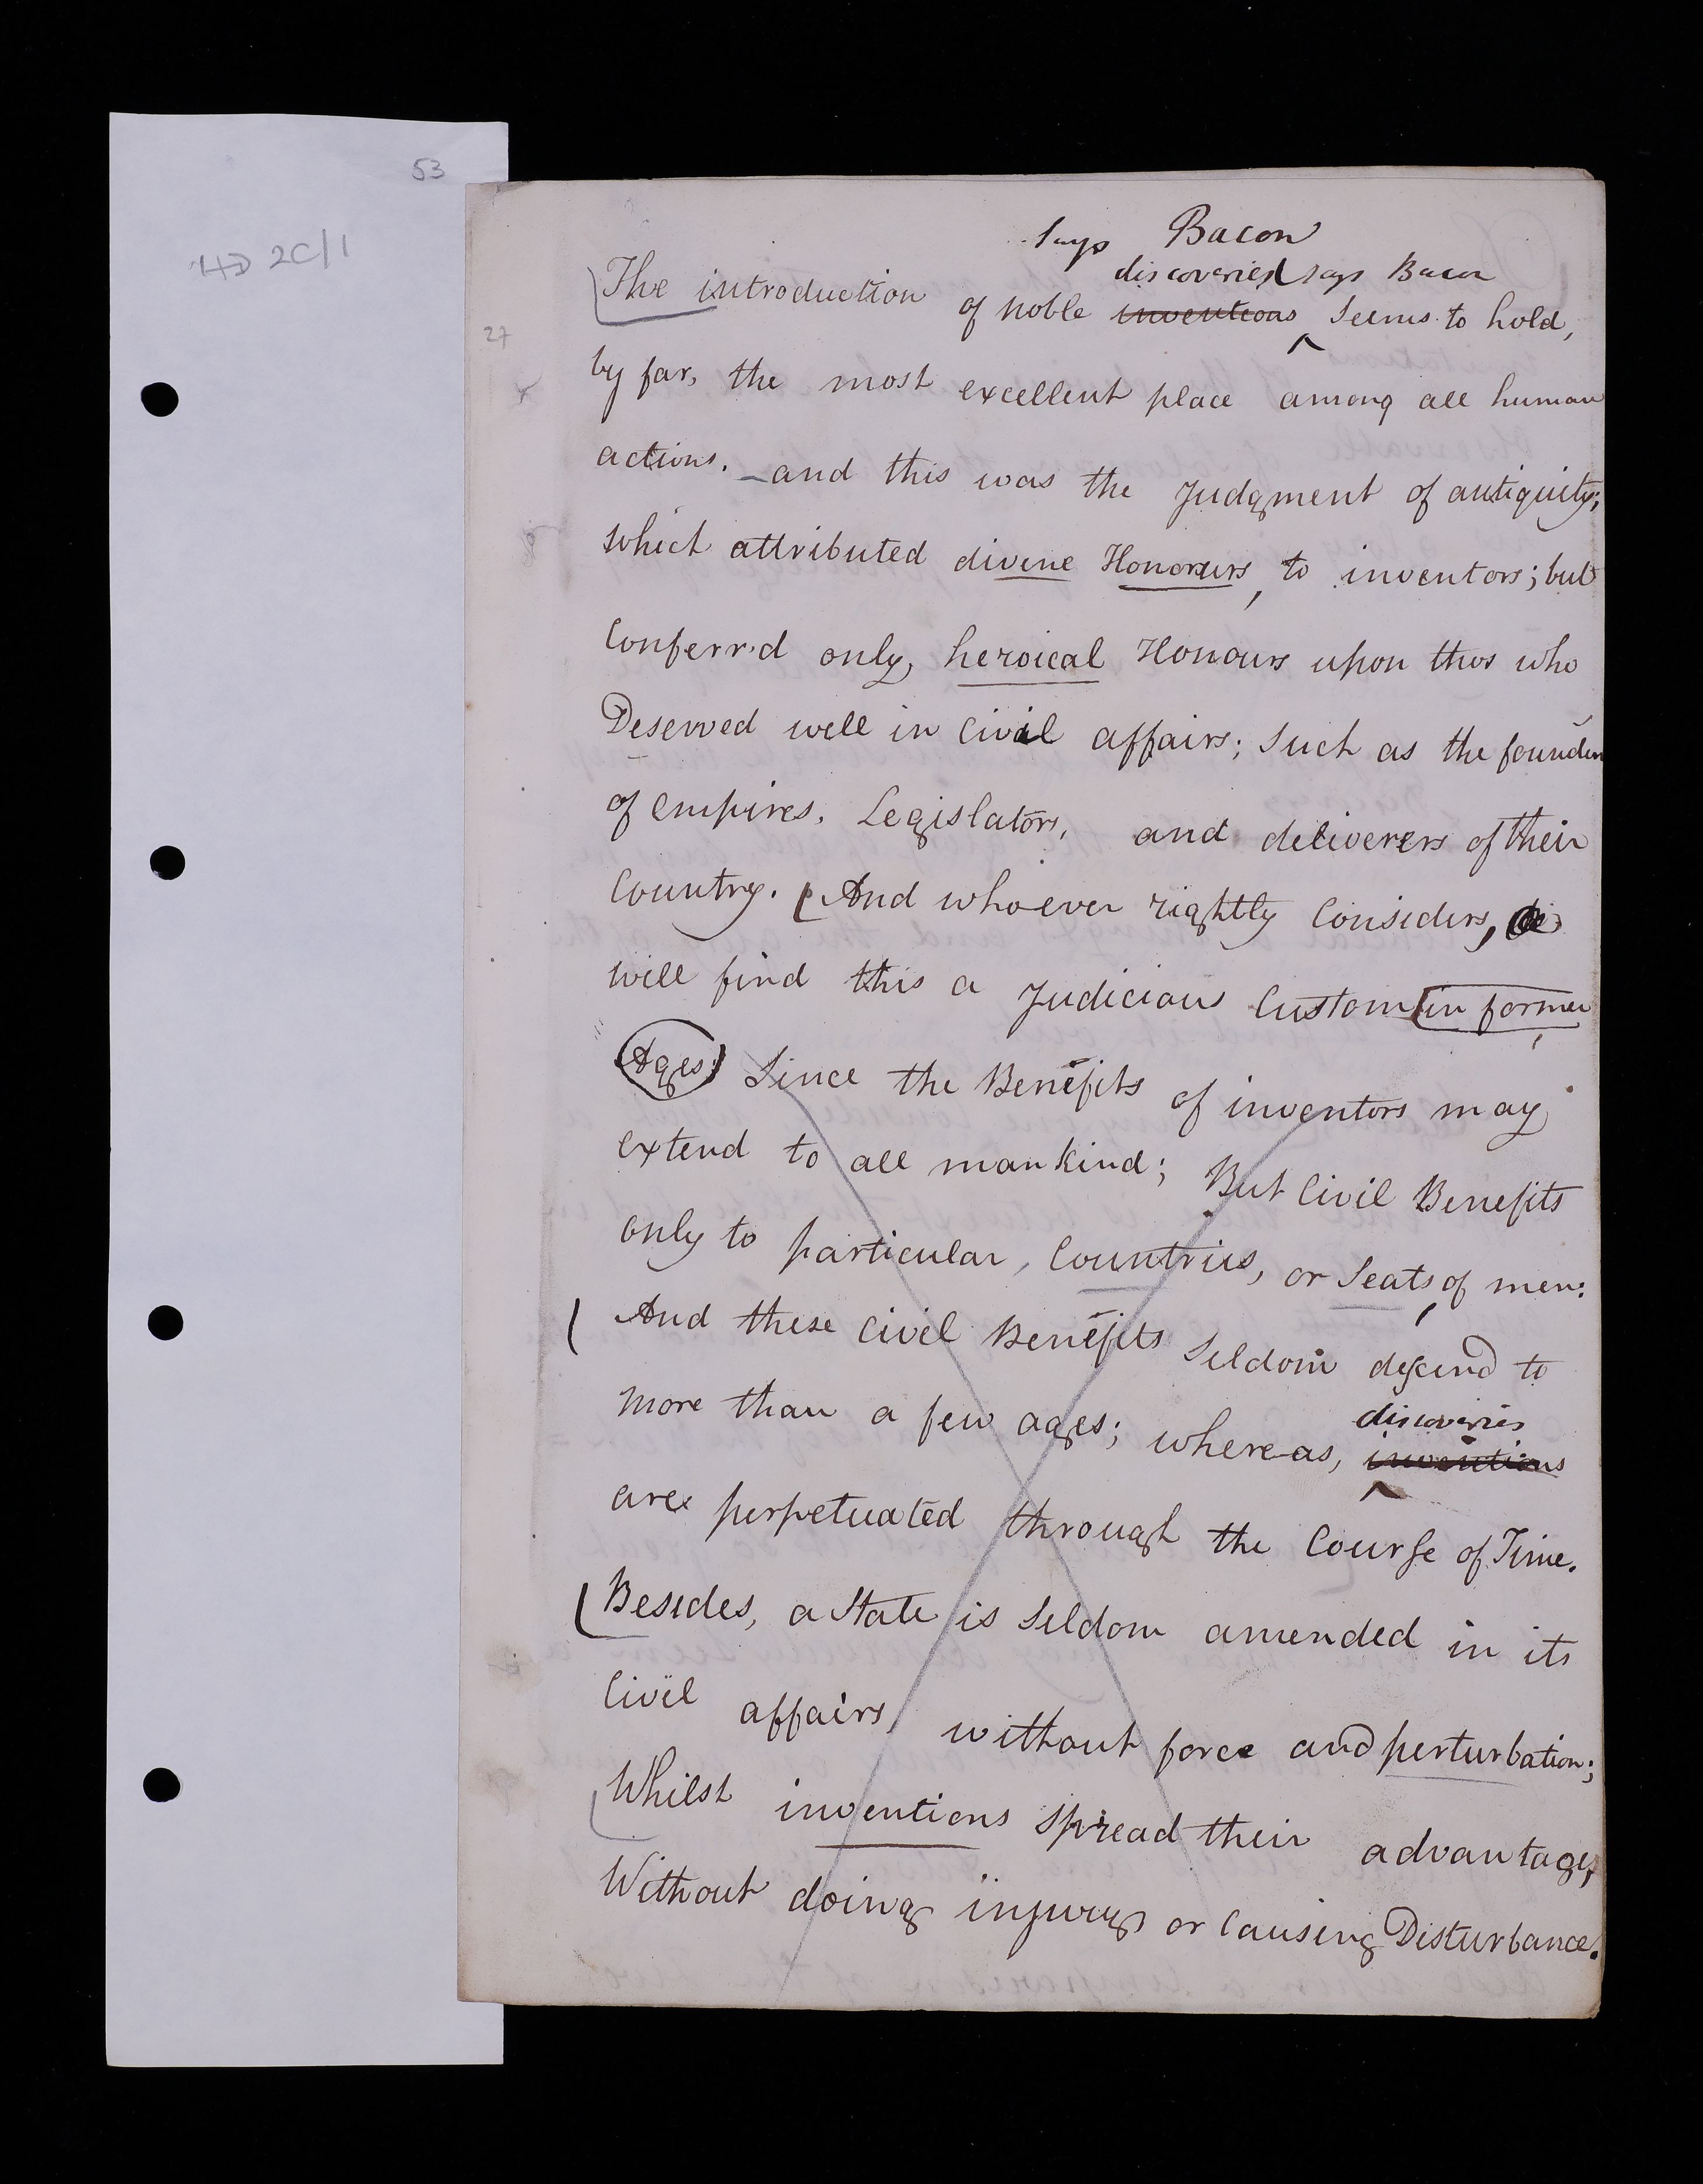 53
HD 2C/1
says Bacon
discoveries says Bacon
The introduction of noble inventions seems to hold,
27
by far, the most excellent place among all human
actions. _ and this was the Judgment of antiquity;
which attributed divine Honours, to inventors; but
Conferr'd only, heroical Honours upon thos who
Deserved well in Civil affairs; Such as the founders
of empires, Legislators, and deliverers of their
Country. [And whoever rightly Considers,
will find this a Judicious Custom [in former
Ages) Since the Benefits of inventors may
extend to all mankind; But Civil Benefits
only to particular, Countries, or Seats, of men:
( And these Civil Benefits Seldom descend to
discoveries
more than a few ages; where-as, inventions
are perpetuated through the Course of Time.
[Besides, a State is Seldom amended in its
Civil affairs, without force and perturbation;
[Whilst inventions Spread their advantages,
Without doing injury or Causing Disturbance.